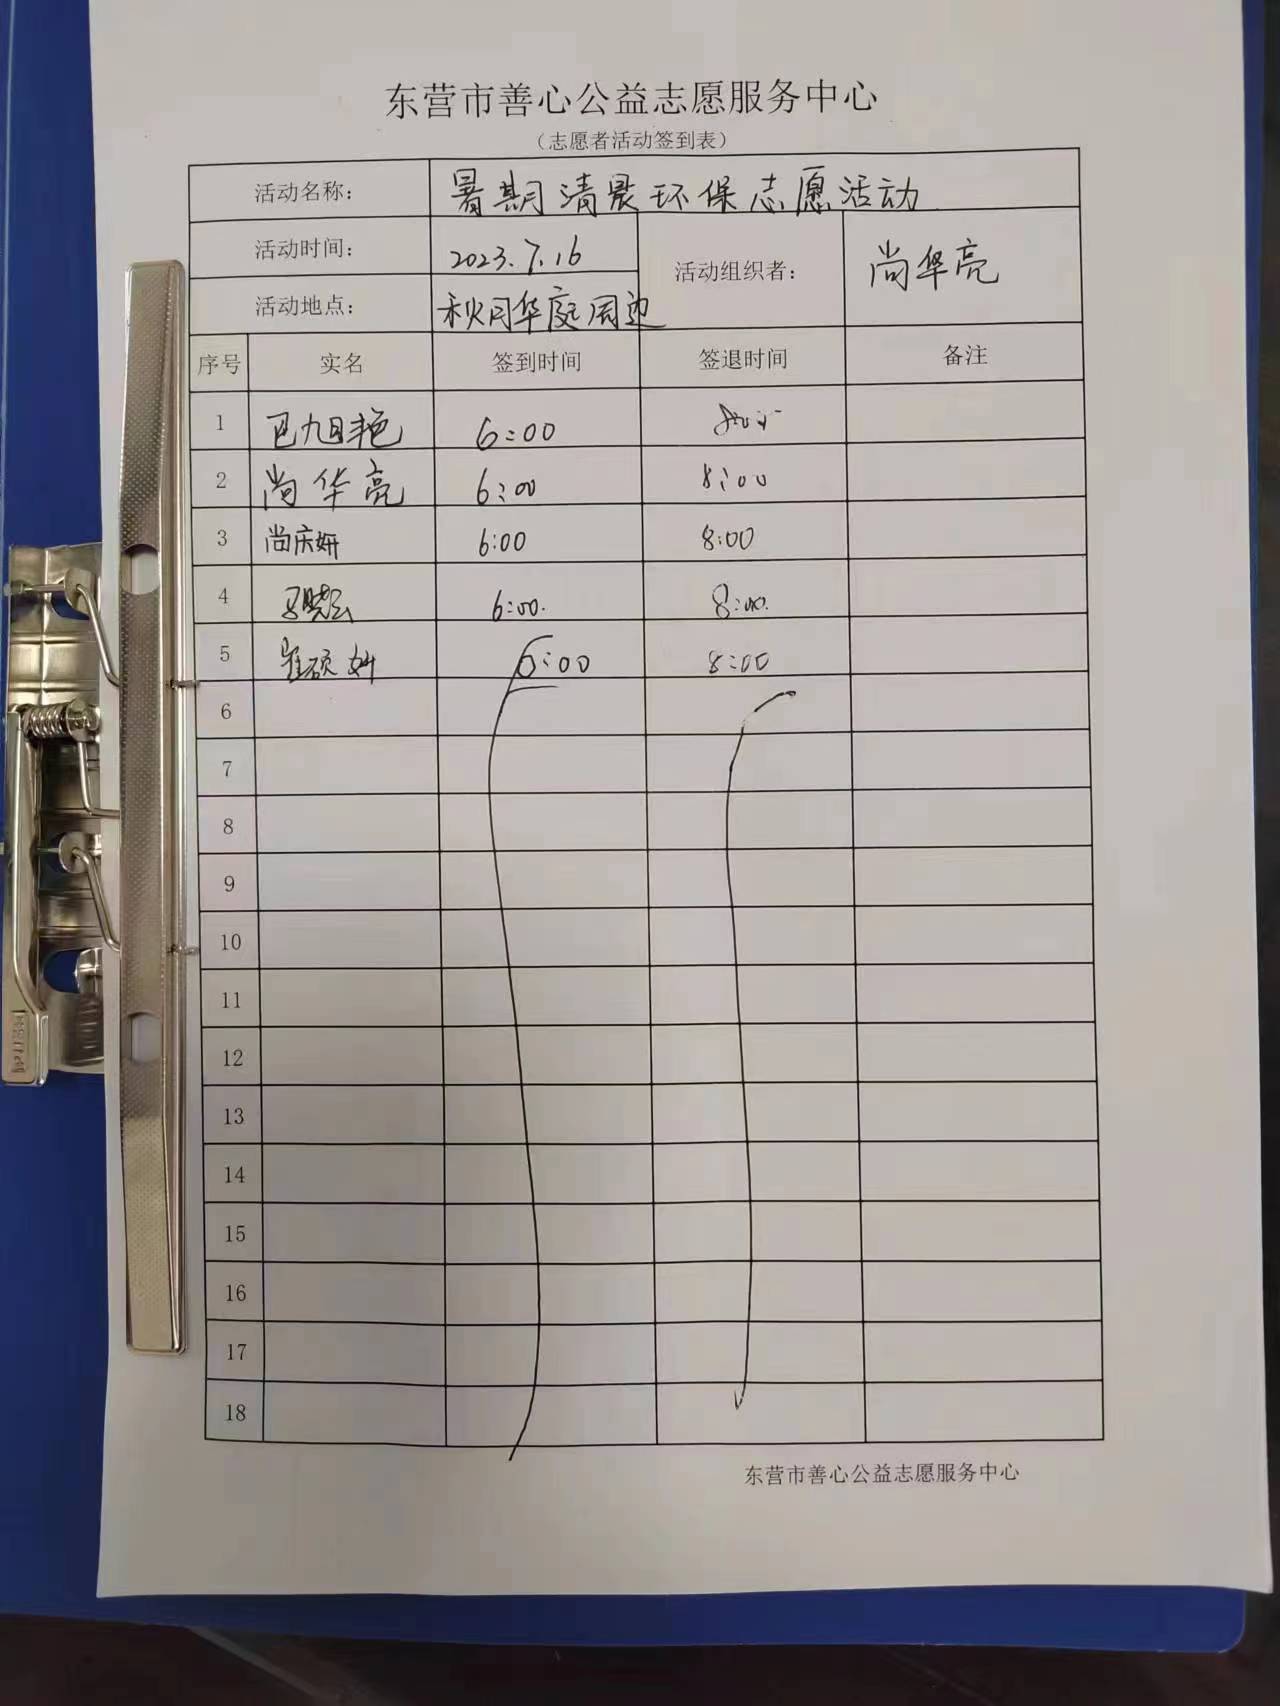 东营市善心公益志愿服务中心
（志愿者活动签到表）
活动名称： 暑期清晨环保志愿活动
活动时间： 2023.7.16 活动组织者： 尚华亮
活动地点： 秋月华庭周边
序号 实名 签到时间 签退时间 备注
1 6:00
2 尚华亮 6:00 8:00
3 尚庆妍 6:00 8:00
4 6:00. 8:00.
5 崔硕妍 6:00 8:00
6
7
8
9
10
11
12
13
14
15
16
17
18
东营市善心公益志愿服务中心